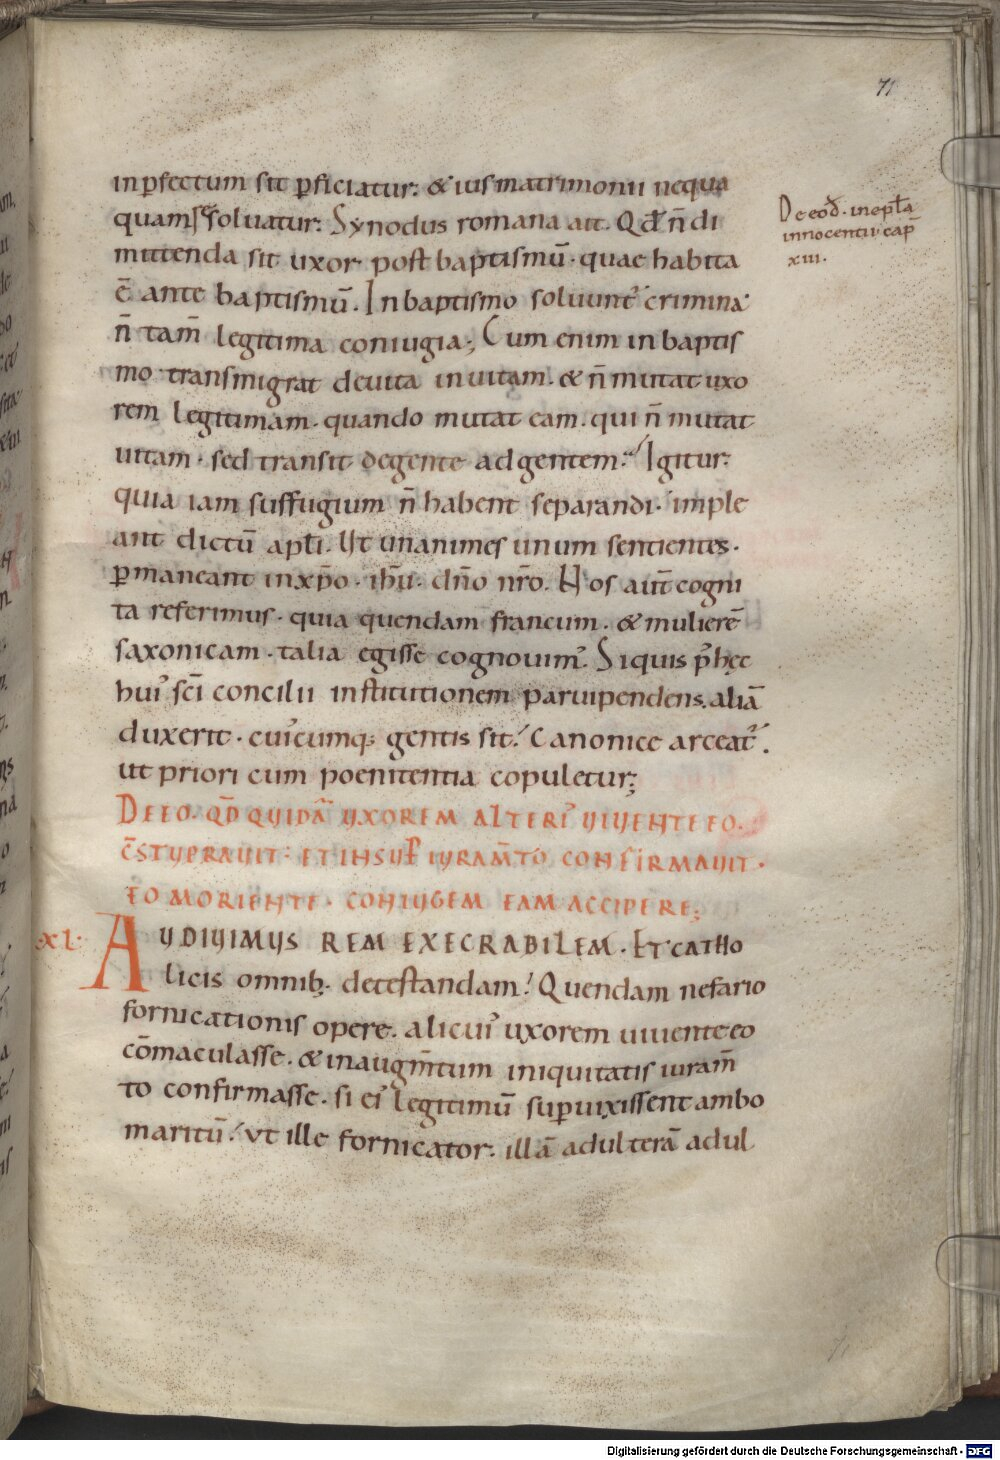 71
inp̄fectum sit p̄ficiatur: & ius matrimonii nequa
quam soluatur: Synodus romana ait. Qd̄ n̄ di
mittenda sit uxor post baptismū. quae habita
ē ante baptismū. In baptismo soluunt᷒ crimina
n̄ tam̄ legitima coniugia; Cum enim in baptis
mo transmigrat de uita in uitam. & n̄ mutat uxo
rem legitimam. quando mutat eam. qui n̄ mutat
uitam. sed transit de gente ad gentem. Igitur
quia iam suffugium n̄ habent separandi. imple
ant dictū apl̄i. Ut unanimes unum sentientes.
p̄maneant in xp̄o. ih̄u. dn̄o nr̄o. Nos aut̄ cogni
ta referimus. quia quendam francum. & mulierē
saxonicam. talia egisse cognouim᷒. Siquis p᷒ hęc
hui᷒ sc̄i concilii institutionem paruipendens. aliā
duxerit. cui᷒cumq; gentis sit. Canonice arceat᷒.
ut priori cum poenitentia copuletur;
DE EO. QD̄ QUIDĀ UXOREM ALTERI᷒ UIUENTE EO.
C̄STUPRAUIT. ET INSUP̄ IURAM̄TO CONFIRMAUIT.
EO MORIENTE. CONIUGEM EAM ACCIPERE;
XL. AUDIUIMUS REM EXECRABILEM. ET CATHO
licis omnib; detestandam. Quendam nefario
fornicationis opere. alicui᷒ uxorem uiuente eo
cōmaculasse. & in augm̄tum iniquitatis iuram̄
to confirmasse. si ei᷒ legitimū sup̄uixissent ambo
maritū. ut ille fornicator. illā adulterā adul
De eod̄. in epl̄a
innocentii cap̄
xiii.
Digitalisierung gefördert durch die Deutsche Forschungsgemeinschaft - DFG